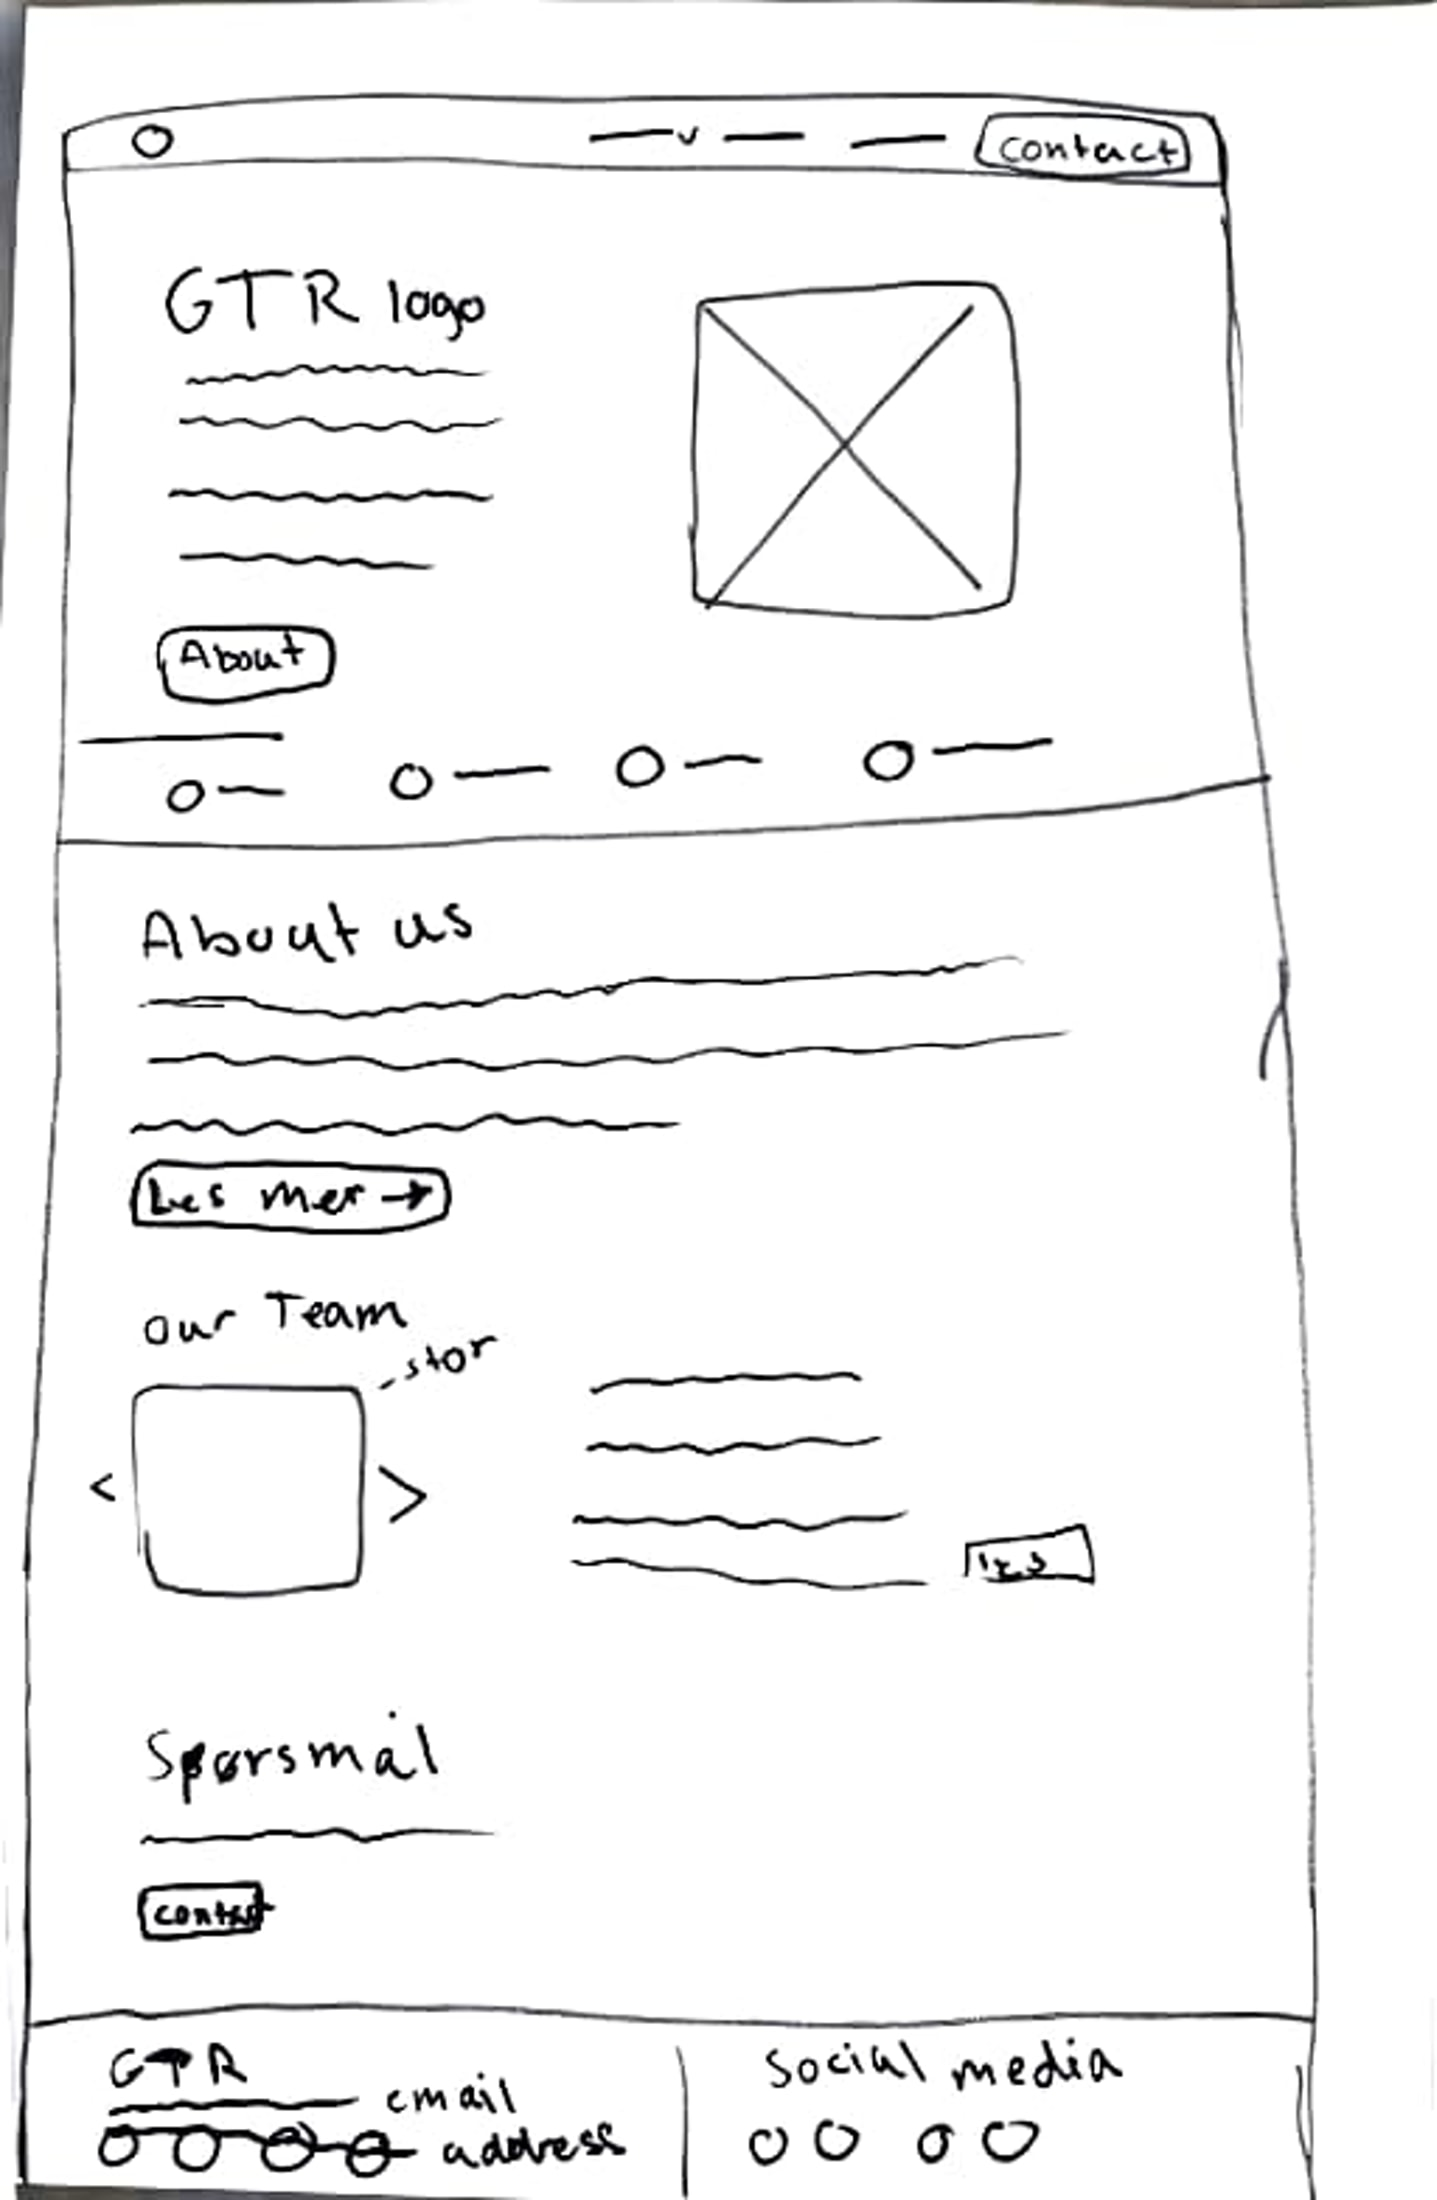 contact
GTR logo
About
About us
Les mer →
our Team
stor
<
>
les
Spørsmål
contact
GTR
email
address
social media